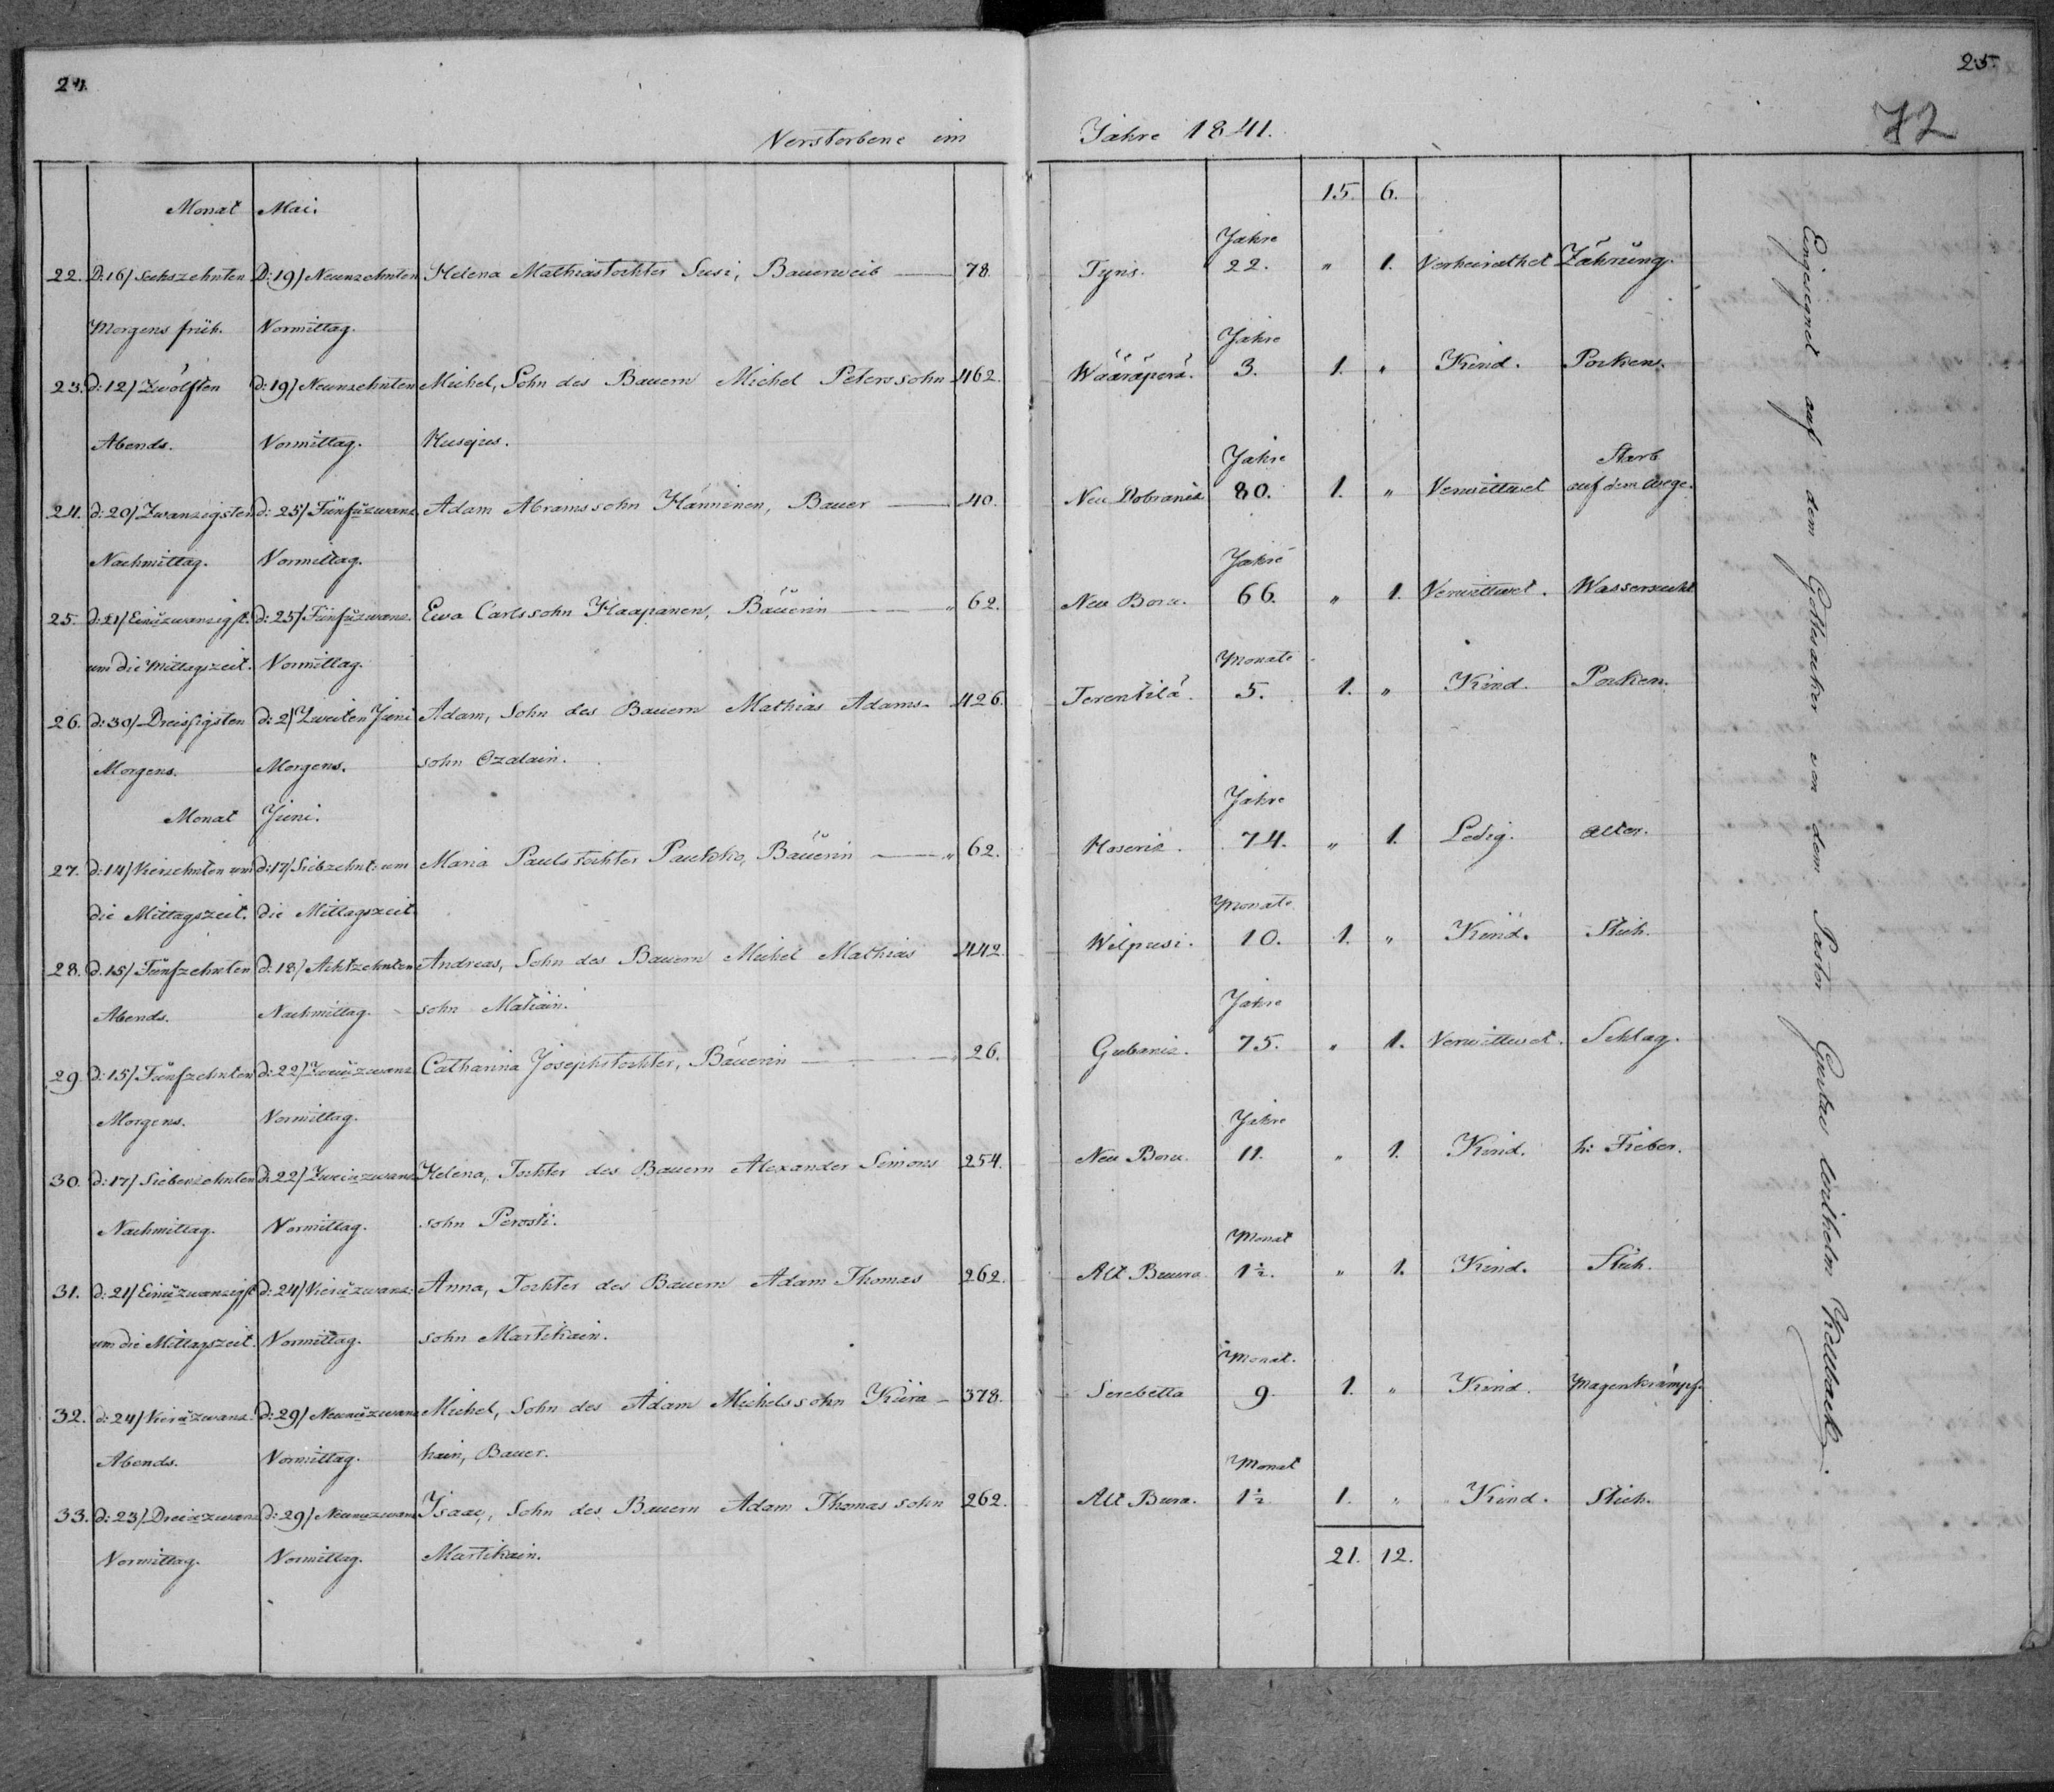 24.
25.
72
Verstorbene im Jahre 1841.
15. 6.
Monat Mai.
Jahre
22. D: 16/ Sechszehnten D: 19/ Neunzehnten Helena Mathiastochter Susi, Bauerweib — 78. Tyris. 22. " 1. Verheirathet Zährung.
Morgens früh. Vormittag.
Jahre
23. d: 12/ Zwölften d: 19/ Neunzehnten Michel, Sohn des Bauern Michel Peterssohn 462. Wääräperä. 3. 1. " Kind. Pocken.
Abends. Vormittag. Husgius.
Jahre Starb
24. d: 20/ Zwanzigsten d: 25/ Fünfüzwanz. Adam Abramssohn Hänninen, Bauer — 40. Neu Dobraniz 80. 1. " Verwittwet auf dem Wege.
Nachmittag. Vormittag.
Jahre
25. d: 21/ Einüzwanzigst. d: 25/ Fünfüzwanz. Ewa Carlssohn Haapanen, Bäuerin — " 62. Neu Boru. 66. " 1. Verwittwet. Wassersucht
um die Mittagszeit. Vormittag.
Monate
26. d: 30/ Dreissigsten d: 2/ Zweiten Juni Adam, Sohn des Bauern Mathias Adams- 426. Terentilä. 5. 1. " Kind. Pocken.
Morgens. Morgens. sohn Ozalain.
Monat Juni.
Jahre
27. d: 14/ Vierzehnten um d: 17/ Siebzehnt: um Maria Paulstochter Paukko, Bäuerin — " 62. Haseriz. 74. " 1. Ledig. Alter.
die Mittagszeit. die Mittagszeit
Monate
28. d. 15/ Fünfzehnten d: 18/ Achtzehnten Andreas, Sohn des Bauern Michel Mathias 442. Wilpusi. 10. 1. " Kind. Stich.
Abends. Nachmittag. sohn Matiain.
Jahre
29. d: 15/ Fünfzehnten d: 22/ Zweiüzwanz. Catharina Josephstochter, Bäuerin — " 26. Gubaniz. 75. " 1. Verwittwet. Schlag.
Morgens. Vormittag.
Jahre
30. d: 17/ Siebenzehnten d: 22/ Zweiüzwanz. Helena, Tochter des Bauern Alexander Simons 254. Neu Boru. 11. " 1. Kind. h: Fieber.
Nachmittag. Vormittag. sohn Perosti.
Monat
31. d: 21/ Einüzwanzigst d: 24/ Vierüzwanz: Anna, Tochter des Bauern Adam Thomas 262. Alt Buura. 1½. " 1. Kind. Stich.
um die Mittagszeit. Vormittag. sohn Martikain.
Monat.
32. d: 24/ Vierüzwanz. d: 29/ Neunüzwanz Michel, Sohn des Adam Michelssohn Kiira- 378. Serebetta 9. 1. " Kind. Magenkrämpf.
Abends. Vormittag. hain, Bauer.
Monat
33. d: 23/ Dreiüzwanz d: 29/ Neunüzwanz Isaac, Sohn des Bauern Adam Thomassohn 262. Alt Bura. 1½ 1. " Kind. Stich.
Vormittag. Vormittag. Martikain.
21. 12.
Eingesegnet auf dem Gottesacker von dem Pastor Gustav Wilhelm